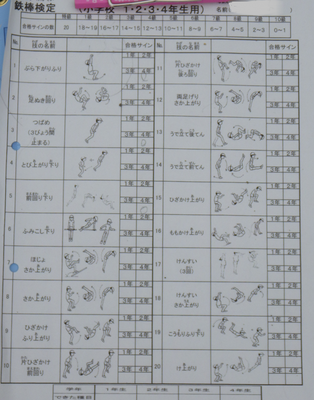 鉄棒検定 (小学校 1・2・3・4年生用) 名前(
特級 1級 2級 3級 4級 5級 6級 7級 8級 9級 10級
合格サインの数 20 18~19 16~17 14~15 12~13 10~11 8~9 6~7 4~5 2~3 0~1
№ 技の名前 合格サイン № 技の名前 合格サイン
1 ぶら下がりふり 1年 2年 3年 4年
2 足ぬき回り 1年 2年 3年 4年
3 つばめ (5びょう間止まる) 1年 2年 3年 4年
4 とび上がり下り 1年 2年 3年 4年
5 前回り下り 1年 2年 3年 4年
6 ふみこし下り 1年 2年 3年 4年
7 ほじょさか上がり 1年 2年 3年 4年
8 さか上がり 1年 2年 3年 4年
9 ひざかけふり上がり 1年 2年 3年 4年
10 片ひざかけ前回り 1年 2年 3年 4年
11 片ひざかけ後ろ回り 1年 2年 3年 4年
12 両足けりさか上がり 1年 2年 3年 4年
13 うで立て後てん 1年 2年 3年 4年
14 うで立て前てん 1年 2年 3年 4年
15 ひざかけ上がり 1年 2年 3年 4年
16 ももかけ上がり 1年 2年 3年 4年
17 けんすい (3回) 1年 2年 3年 4年
18 けんすいさか上がり 1年 2年 3年 4年
19 こうもりふり下り 1年 2年 3年 4年
20 け上がり 1年 2年 3年 4年
学年 1年生 2年生 3年生 4年生
できた種目